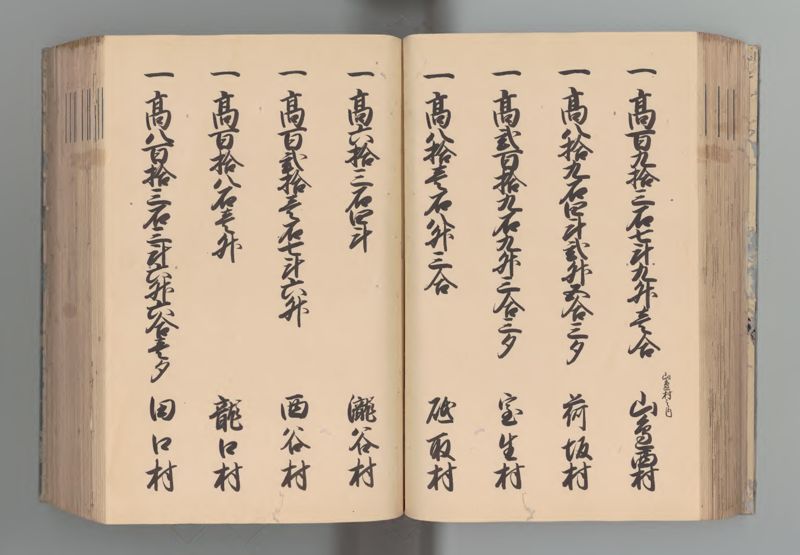 一 高百九拾三石七斗九升壱合
山邉村之内
山邉西村
一 高八拾九石四斗弐升五合三夕
荷坂村
一 高弐百拾九石九升三合三夕
室生村
一 高八拾壱石八升三合
砥取村
一 高六拾三石四斗
瀧谷村
一 高百弐拾壱石七斗六升
西谷村
一 高百拾八石壱升
龍口村
一 高八百拾三石三斗六升六合壱夕
田口村